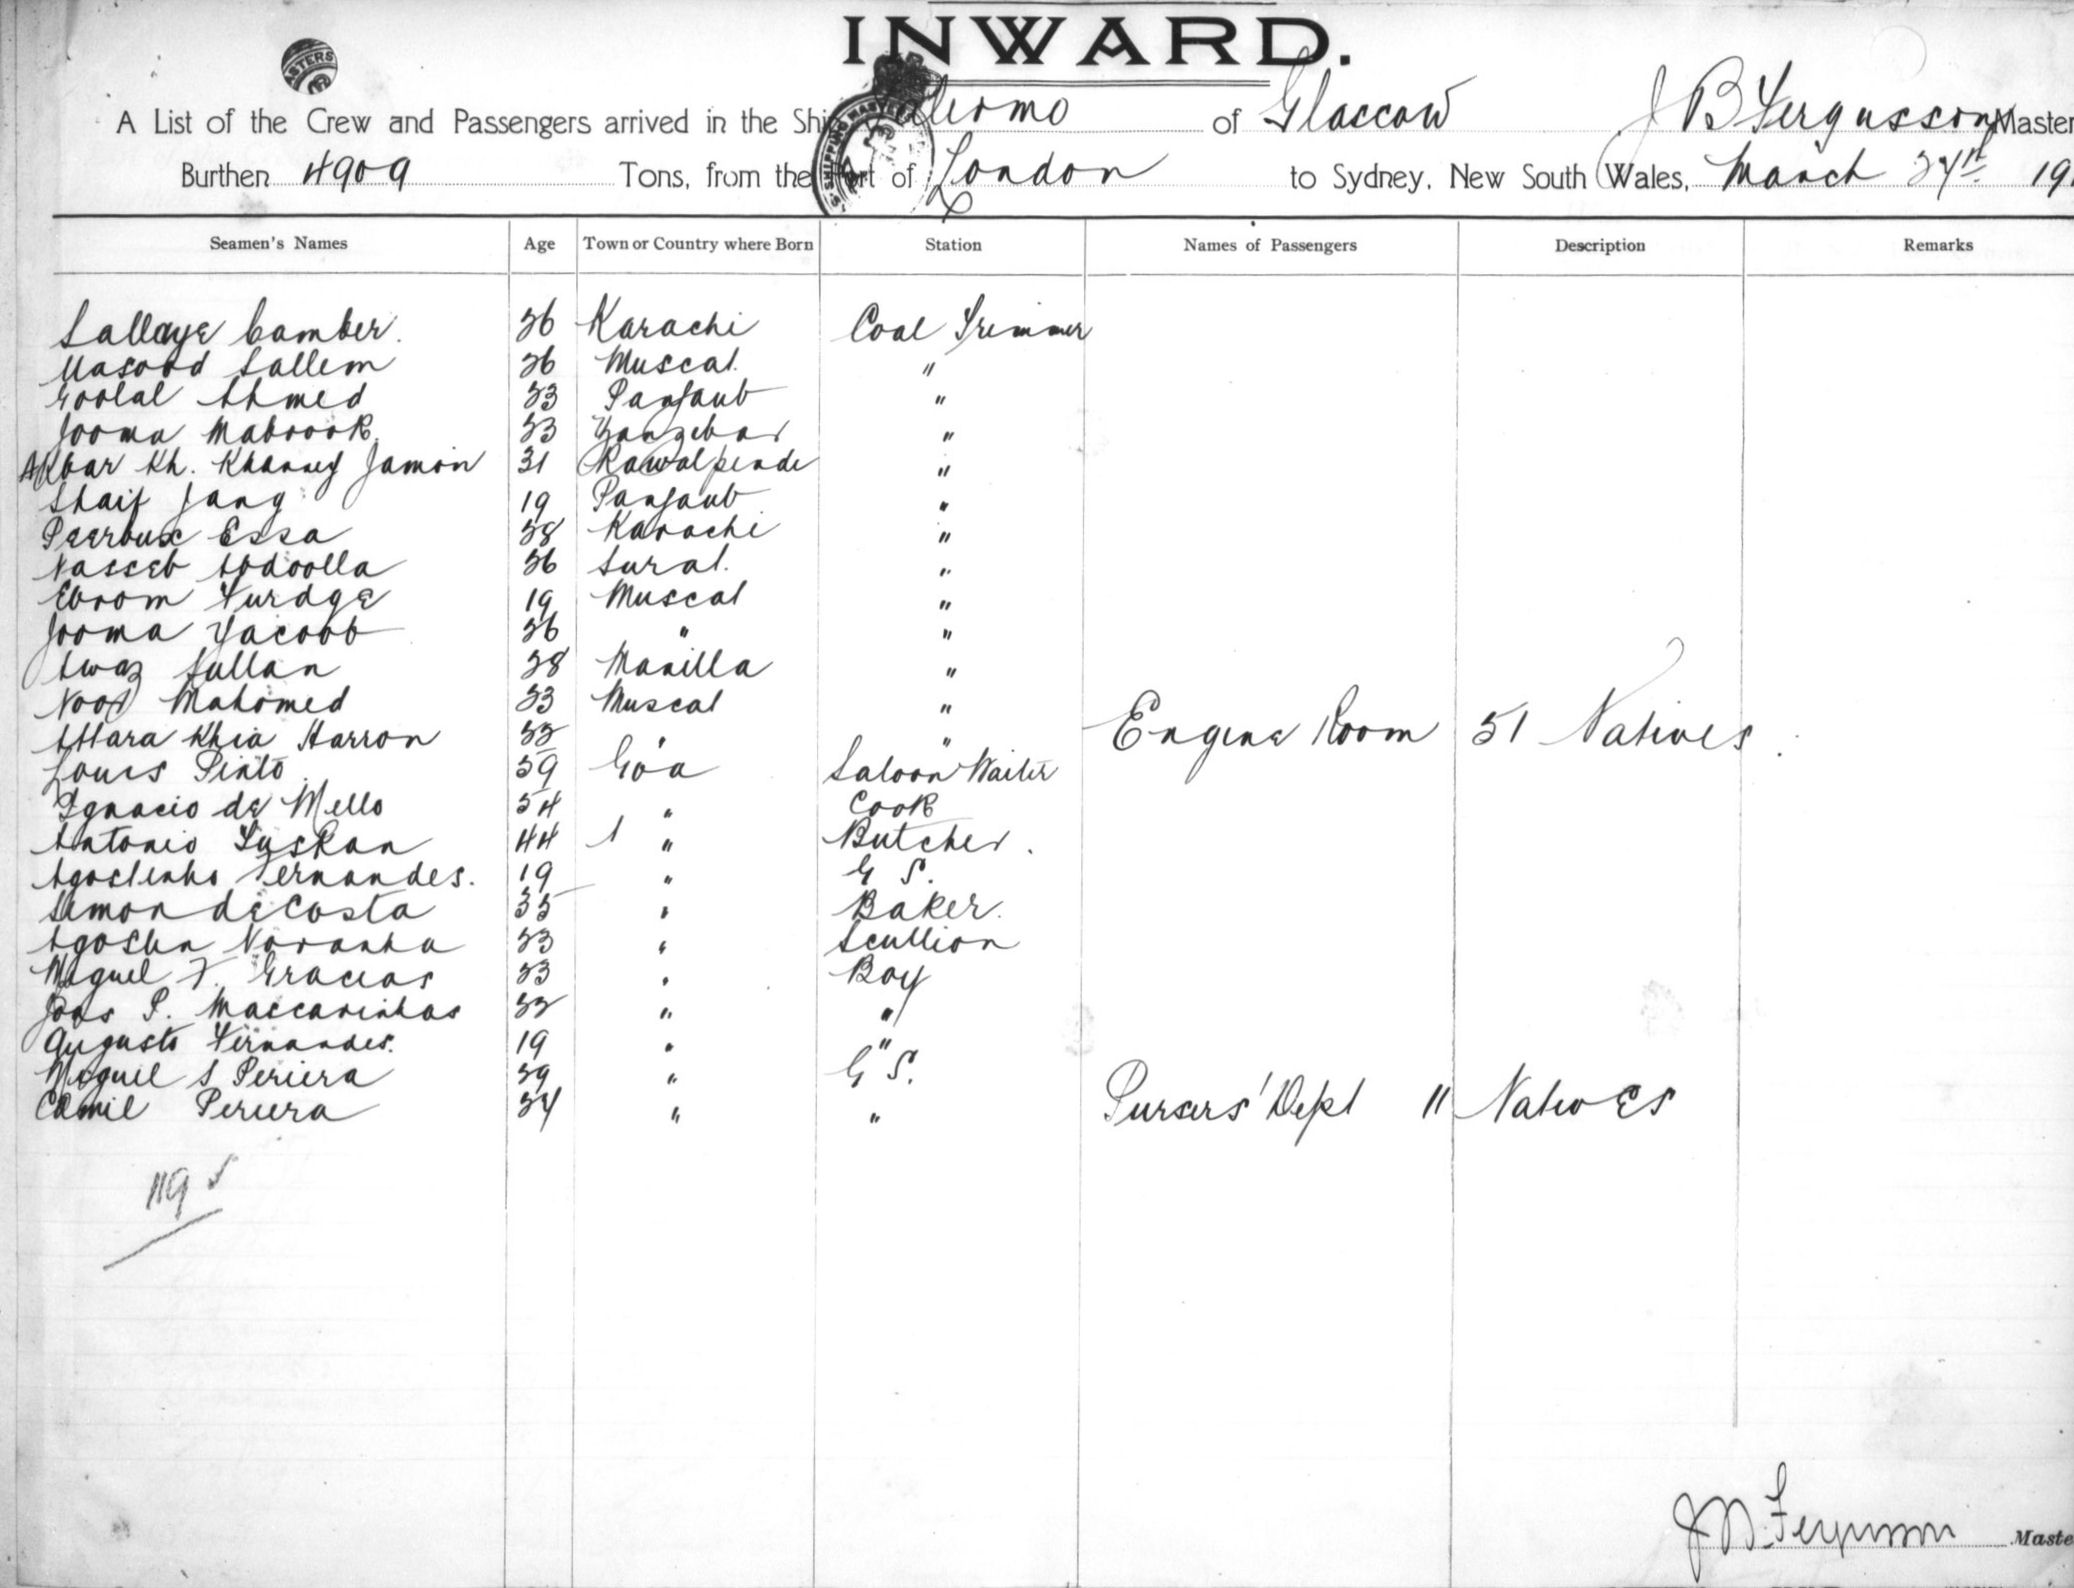 INWARD.
A List of the Crew and Passengers arrived in the Ship of Glasccow J B Fergusson Master
Burthen 4909 Tons, from the Port of London to Sydney, New South Wales, March 19
Seamen's Names Age Town or Country where Born Station Names of Passengers Description Remarks
Sallaye Camber. 26 Karachi Coal Trimmer
Masood Sallem 26 Muscat. "
Goolal Ahmed 23 Panjaub "
Jooma Mabrook. 23 Zanzebar "
Akbar Kh. Jamon 31 Rawalpende "
Shaif Jang 19 Panjaub "
Peerbux Essa 28 Karachi "
Nasceb Abdoolla 26 Surat. "
Ebrom Furdge 19 Muscat "
Jooma Yacoob 26 " "
Awaz Sultan 28 Manilla "
Noor Mahomed 23 Muscat "
Attara Khia Harron 22 " " Engine Room 51 Natives
Louis Pinto 39 Goa Saloon Waiter
Ignacio de Mello 34 " Cook
Antonio 44 " Butcher.
Agostinho Fernandes. 19 " G S.
Simon de Costa 35 " Baker.
Agostin Noronha 23 " Scullion
Miguel F. Gracias 23 " Boy
Joas P. Mascarinhas 22 " "
Augusto Fernandes. 19 " "
Miguel S Periera 29 " G S.
Camil Periera 24 " " Pursers' Dept 11 Natives
119
Master